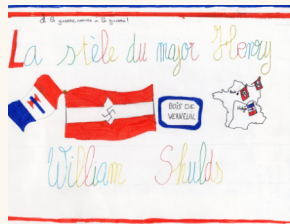 à la guerre comme à la guerre !
La stèle du major Henry
BOIS DE
VERNEUIL
William Shulds